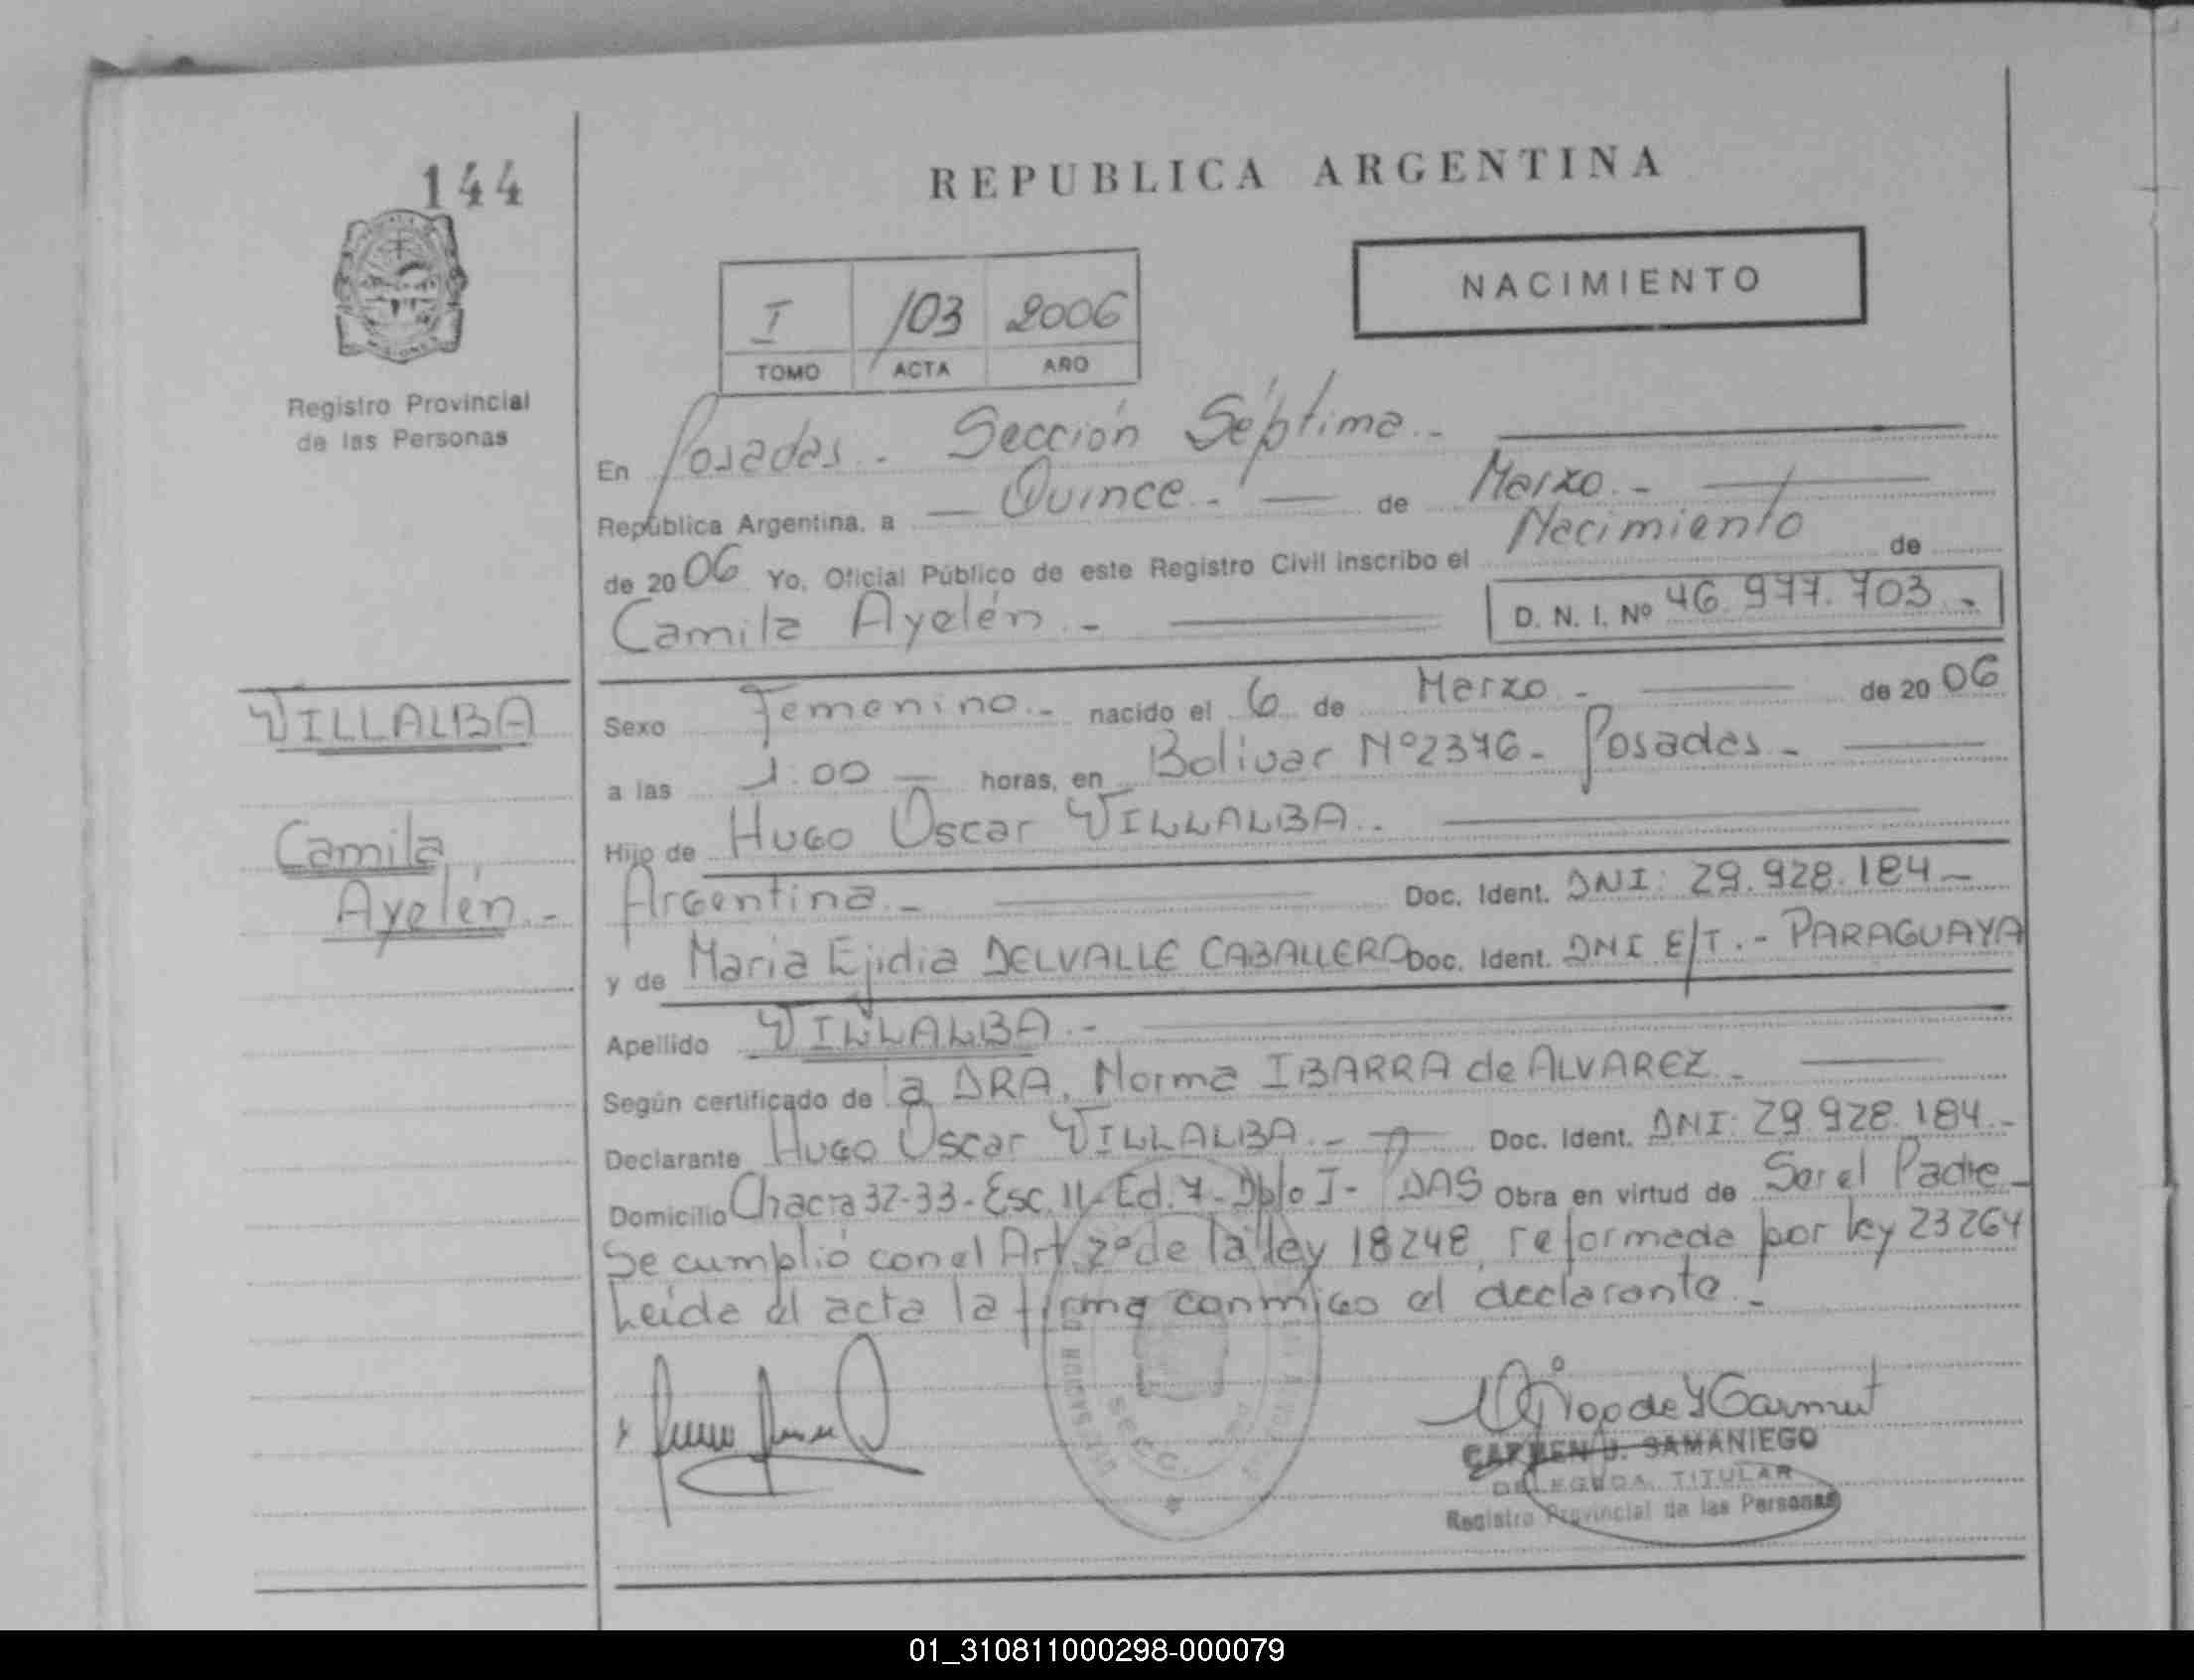 144
REPUBLICA ARGENTINA
NACIMIENTO
I 103 2006
TOMO ACTA AÑO
Registro Provincial
de las Personas
En Posadas.- Sección Séptima.-
República Argentina, a Quince.- de Marzo.-
de 2006 Yo, Oficial Público de este Registro Civil inscribo el Nacimiento de
Camila Ayelén.- D. N. I. Nº 46.977.703.-
VILLALBA
Camila
Ayelén.-
Sexo Femenino.- nacido el 6 de Marzo.- de 2006
a las 1.00 horas, en Bolivar Nº2376- Posadas.-
Hijo de Hugo Oscar VILLALBA.-
Argentina.- Doc. Ident. DNI: 29.928.184-
y de Maria Ejidia DELVALLE CABALLERO Doc. Ident. DNI E/T.- PARAGUAYA
Apellido VILLALBA.-
Según certificado de la DRA. Norma IBARRA de ALVAREZ.-
Declarante Hugo Oscar VILLALBA.- Doc. Ident. DNI: 29.928.184.-
Domicilio Chacra 32-33-Esc. 11-Ed.7-Dpto I- PDAS Obra en virtud de Ser el Padre-
Se cumplió con el Art. 2º de la ley 18248, reformada por ley 23264
Leida el acta la firma conmigo el declarante.-
CARMEN J. SAMANIEGO
DELEGADA TITULAR
Registro Provincial de las Personas
01_310811000298-000079